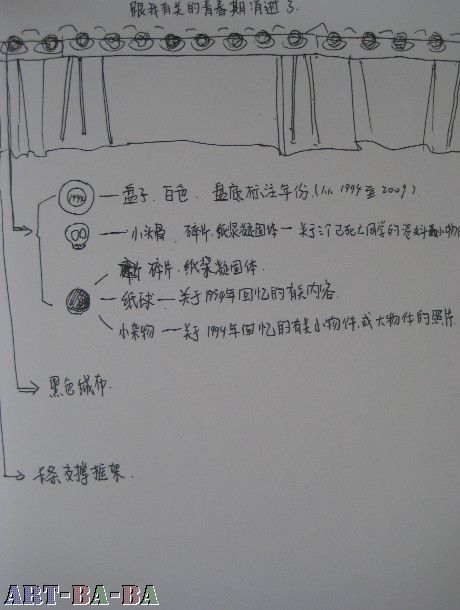 跟我有关的青春期消逝了.
1994
盘子. 白色. 盘底标注年份.(从 1994 至 2009)
小头骨 碎片.纸浆凝固体 — 关于三个已死亡同学的资料 小物件
碎片.纸浆凝固体.
纸球 — 关于1994年回忆的有关内容.
小杂物 — 关于1994年回忆的有关小物件.或大物件的照片
黑色绒布.
卡条支撑框架.
ART-BA-BA